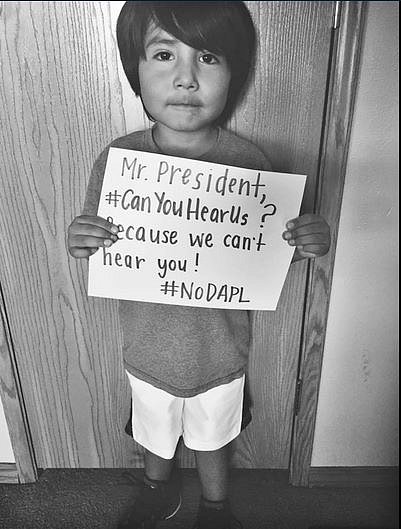 Mr. President,
#CanYouHearUs?
Because we can't
hear you!
#NoDAPL